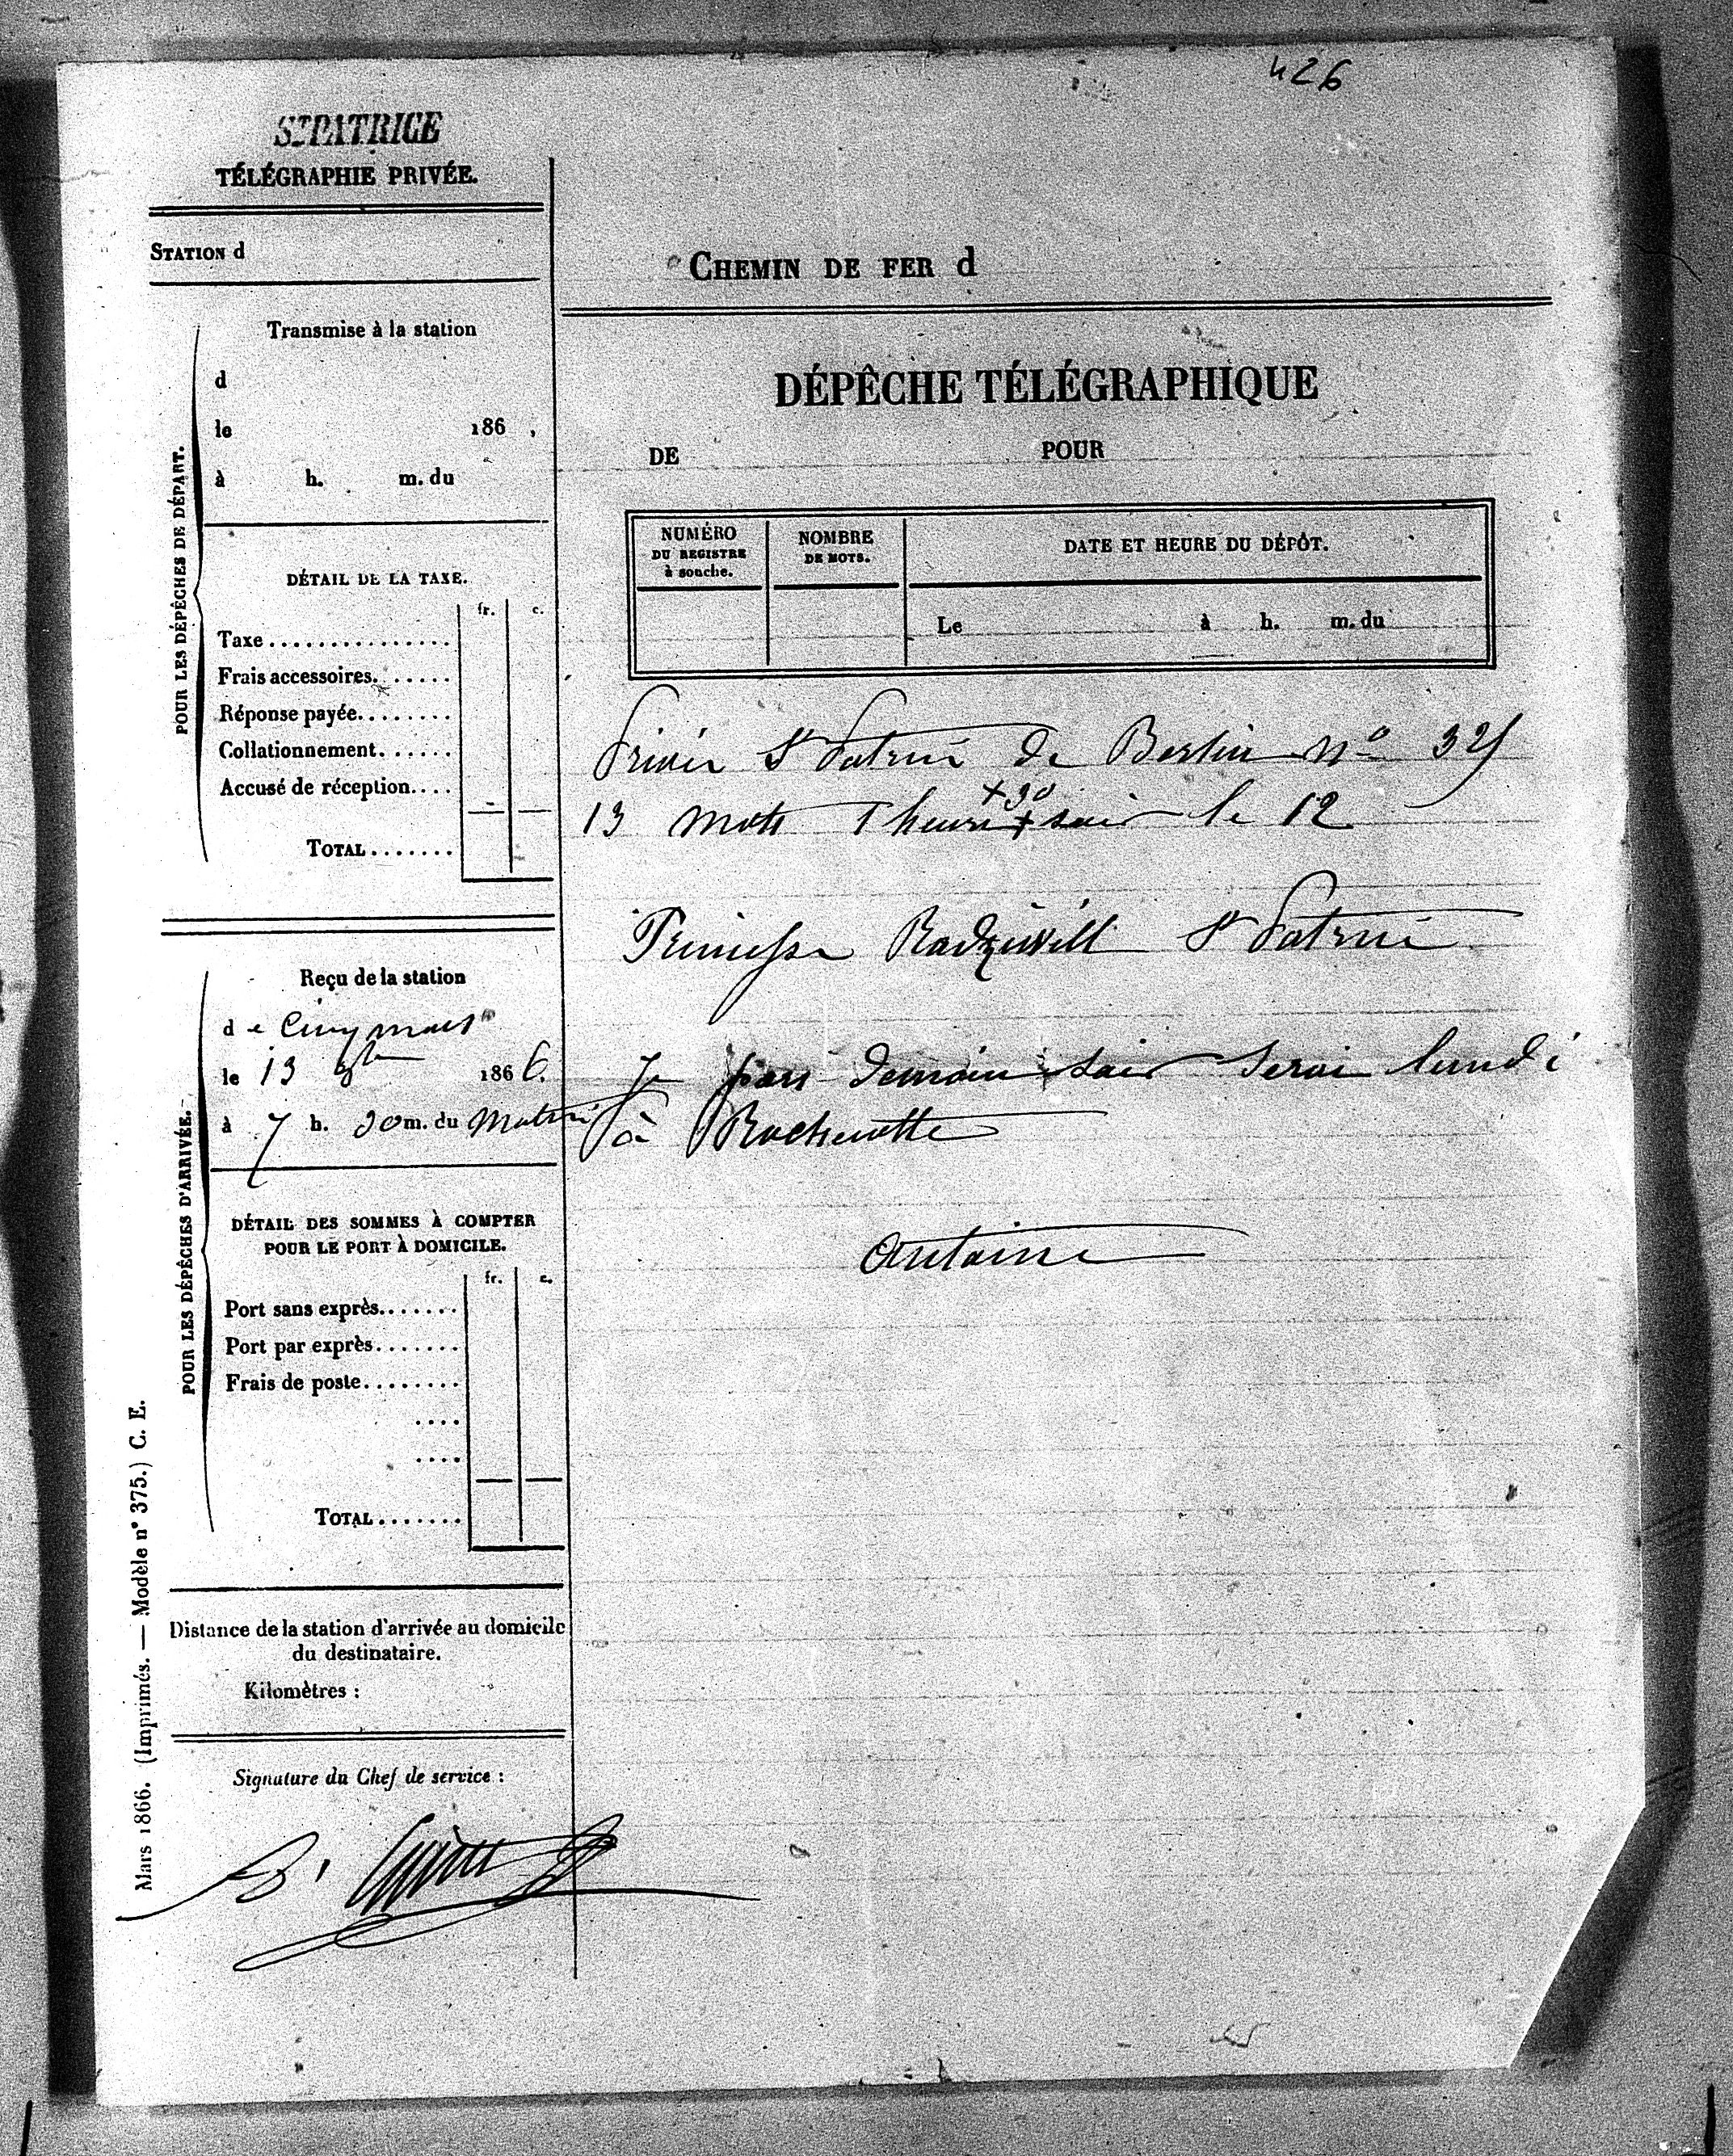 426
ST PATRICE
TÉLÉGRAPHIE PRIVÉE.
STATION d
Transmise à la station
d
le 186 ,
à h. m. du
POUR LES DÉPÊCHES DE DÉPART.
DÉTAIL DE LA TAXE.
fr. c.
Taxe
Frais accessoires
Réponse payée
Collationnement
Accusé de réception
TOTAL
Reçu de la station
de Cinq mars
le 13 8bre 1866.
à 7 h. 30 m. du Matin
POUR LES DÉPÊCHES D'ARRIVÉE.
DÉTAIL DES SOMMES À COMPTER
POUR LE PORT À DOMICILE.
fr. c.
Port sans exprès
Port par exprès
Frais de poste
TOTAL
Distance de la station d'arrivée au domicile
du destinataire.
Kilomètres :
Signature du Chef de service :
Mars 1866. (Imprimés. — Modèle n° 375.) C. E.
CHEMIN DE FER d
DÉPÊCHE TÉLÉGRAPHIQUE
DE POUR
NUMÉRO
DU REGISTRE
à souche.
NOMBRE
DE MOTS.
DATE ET HEURE DU DÉPÔT.
Le à h. m. du
Privée St Patrice de Berlin No
13 mots heures soir le 12
+30
Princesse Radziwill St Patrice
Je pars demain soir serai lundi
à Rochecotte
Antoine